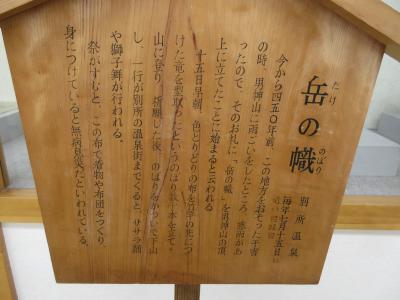 岳の幟
たけ
のぼり
別所温泉
毎年七月十五日
今から四五〇年前、この地方をおそった干害
の時、男神山に雨ごいをしたところ、慈雨があ
ったので、そのお礼に「岳の幟」を男神山の頂
上に立てたことに始まると云われる
十五日早朝、色とりどりの布を竹竿の先につ
けた竜を型取ったというのぼり数十本を立て
山に登り、祈願した後、のぼりをかついで下山
し、一行が別所の温泉街までくると、ササラ踊
や獅子舞が行われる。
祭がすむと、この布で着物や布団をつくり、
身につけていると無病息災だといわれている。